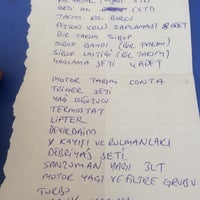 GEZİ AY (STD
TAKIM KOL BURCU
PİSTON KOLU SAPLAMASI 8 ADET
BİR TAKIM SİBOP
SİBOP GAYDI (BİR TAKIM)
SİBOP LASTİĞİ (BİR TAKIM)
YAĞLAMA SETİ 4 ADET
MOTOR TAKIM CONTA
TRİGER SETİ
YAĞ SOĞUTUCU
TERMOSTAT
LİFTER
DEVİRDAİM
V KAYIŞI VE RULMANLARI
DEBRİYAJ SETİ
ŞANZUMAN YAĞI 3LT
MOTOR YAĞI VE FİLTRE GRUBU
TURBO